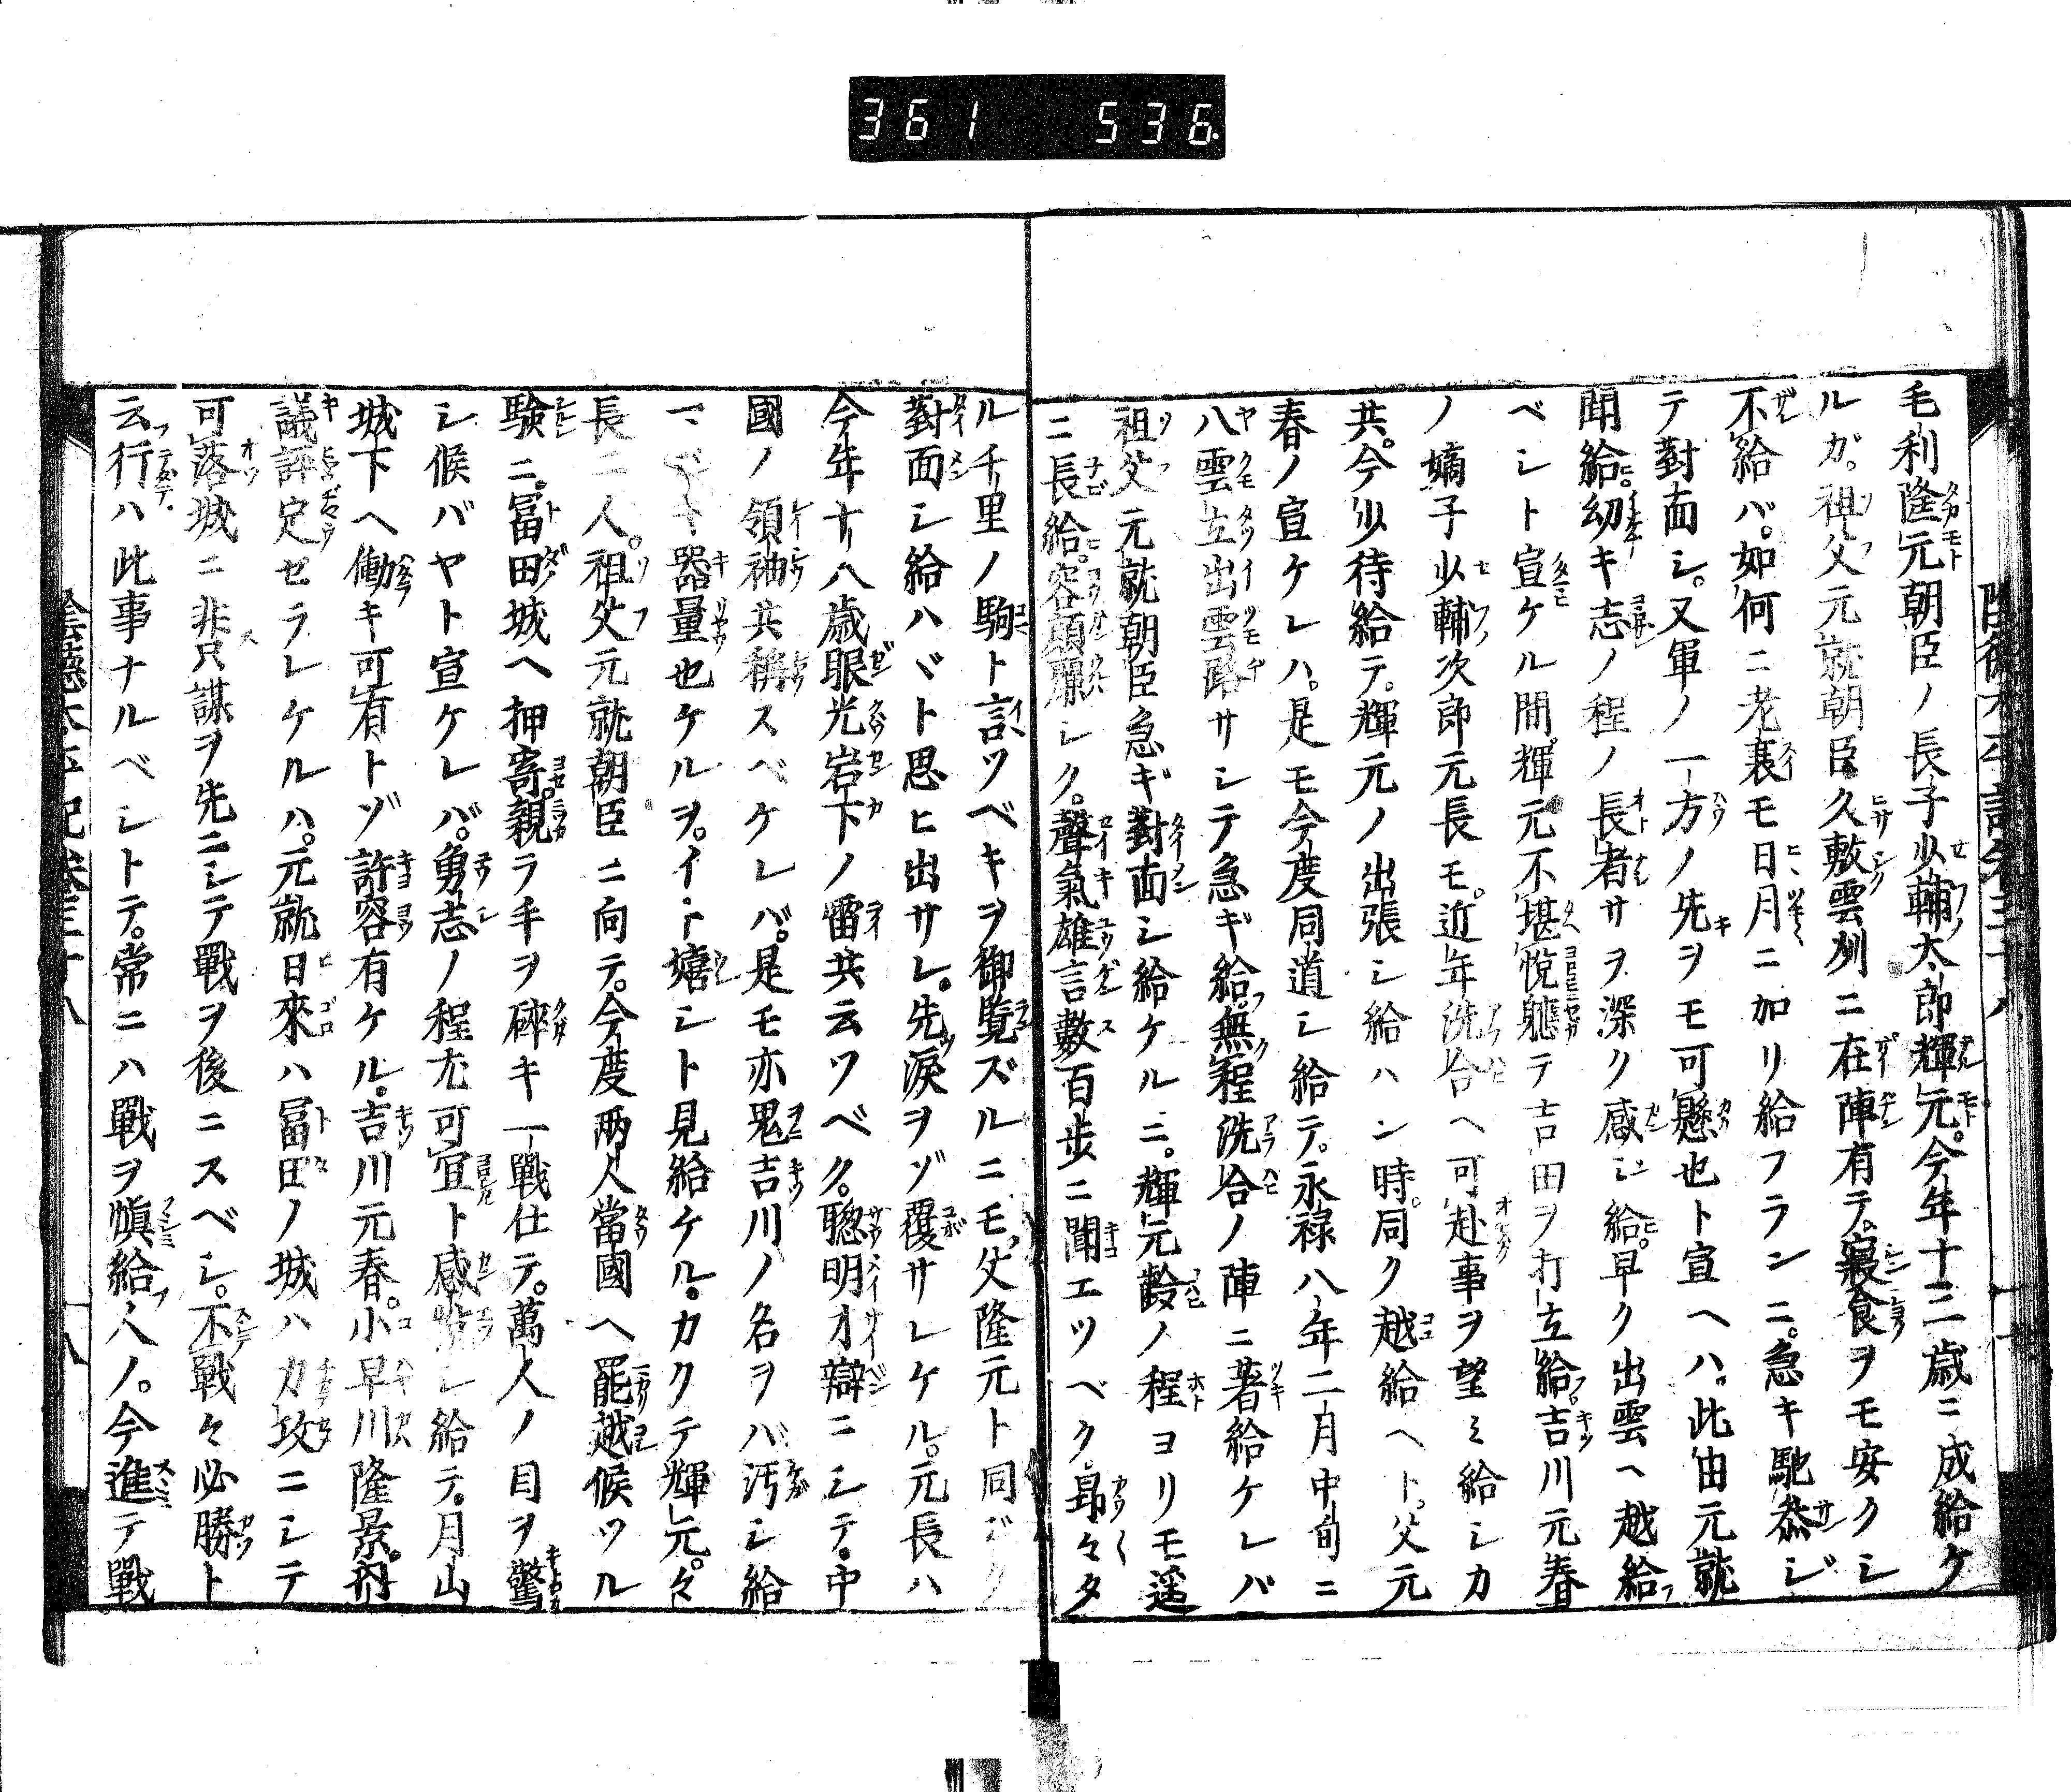 361 536
毛利隆元朝臣ノ長子少輔太郎輝元。今年十三歳ニ成給ケ
ルガ。祖父元就朝臣久敷雲州ニ在陣有テ。寝食ヲモ安クシ
不給バ。如何ニ老衰モ日月ニ加リ給フランニ。急キ馳參ジ
テ對面シ。又軍ノ一方ノ先ヲモ可懸也ト宣ヘハ。此由元就
聞給。幼キ志ノ程ノ長者サヲ深ク感ジ給。早ク出雲ヘ越給
ベシト宣ケル間。輝元不堪悦軈テ吉田ヲ打立給。吉川元春
ノ嫡子少輔次郎元長モ。近年洗合ヘ可赴事ヲ望ミ給シカ
共。今少待給テ。輝元ノ出張シ給ハン時。同ク越給ヘト。父元
春ノ宣ケレハ。是モ今度同道シ給テ。永禄八年二月中旬ニ
八雲立出雲路サシテ急ギ給。無程洗合ノ陣ニ著給ケレバ
祖父元就朝臣急ギ對面シ給ケルニ。輝元齡ノ程ヨリモ遥
ニ長給。容顔麗シク。聲氣雄言數百歩ニ聞エツベク。昂々タ
ル千里ノ駒ト言ツベキヲ御覧ズルニモ。父隆元ト同ジク
對面シ給ハヾト思ヒ出サレ。先涙ヲゾ覆サレケル。元長ハ
今年十八歳眼光岩下ノ雷共云ツベク。聰明才辯ニシテ。中
國ノ領袖共稱スベケレバ。是モ亦鬼吉川ノ名ヲバ汚シ給
器量也ケルヲ。イト嬉シト見給ケル。カクテ輝元。々
長二人。祖父元就朝臣ニ向テ。今度両人當國ヘ罷越候ツル
驗ニ。冨田城ヘ押寄。親ラ手ヲ碎キ一戰仕テ。萬人ノ目ヲ驚
シ候バヤト宣ケレバ。勇志ノ程尤可宜ト感悦シ給テ。月山
城下ヘ働キ可有トゾ許容有ケル。吉川元春。小早川隆景。内
議評定セラレケルハ。元就日來ハ冨田ノ城ハ力攻ニシテ
可落城ニ非只謀ヲ先ニシテ戰ヲ後ニスベシ。不戰々必勝ト
云行ハ此事ナルベシトテ。常ニハ戰ヲ愼給人ノ。今進テ戰
陰德太平記卷三十八
八